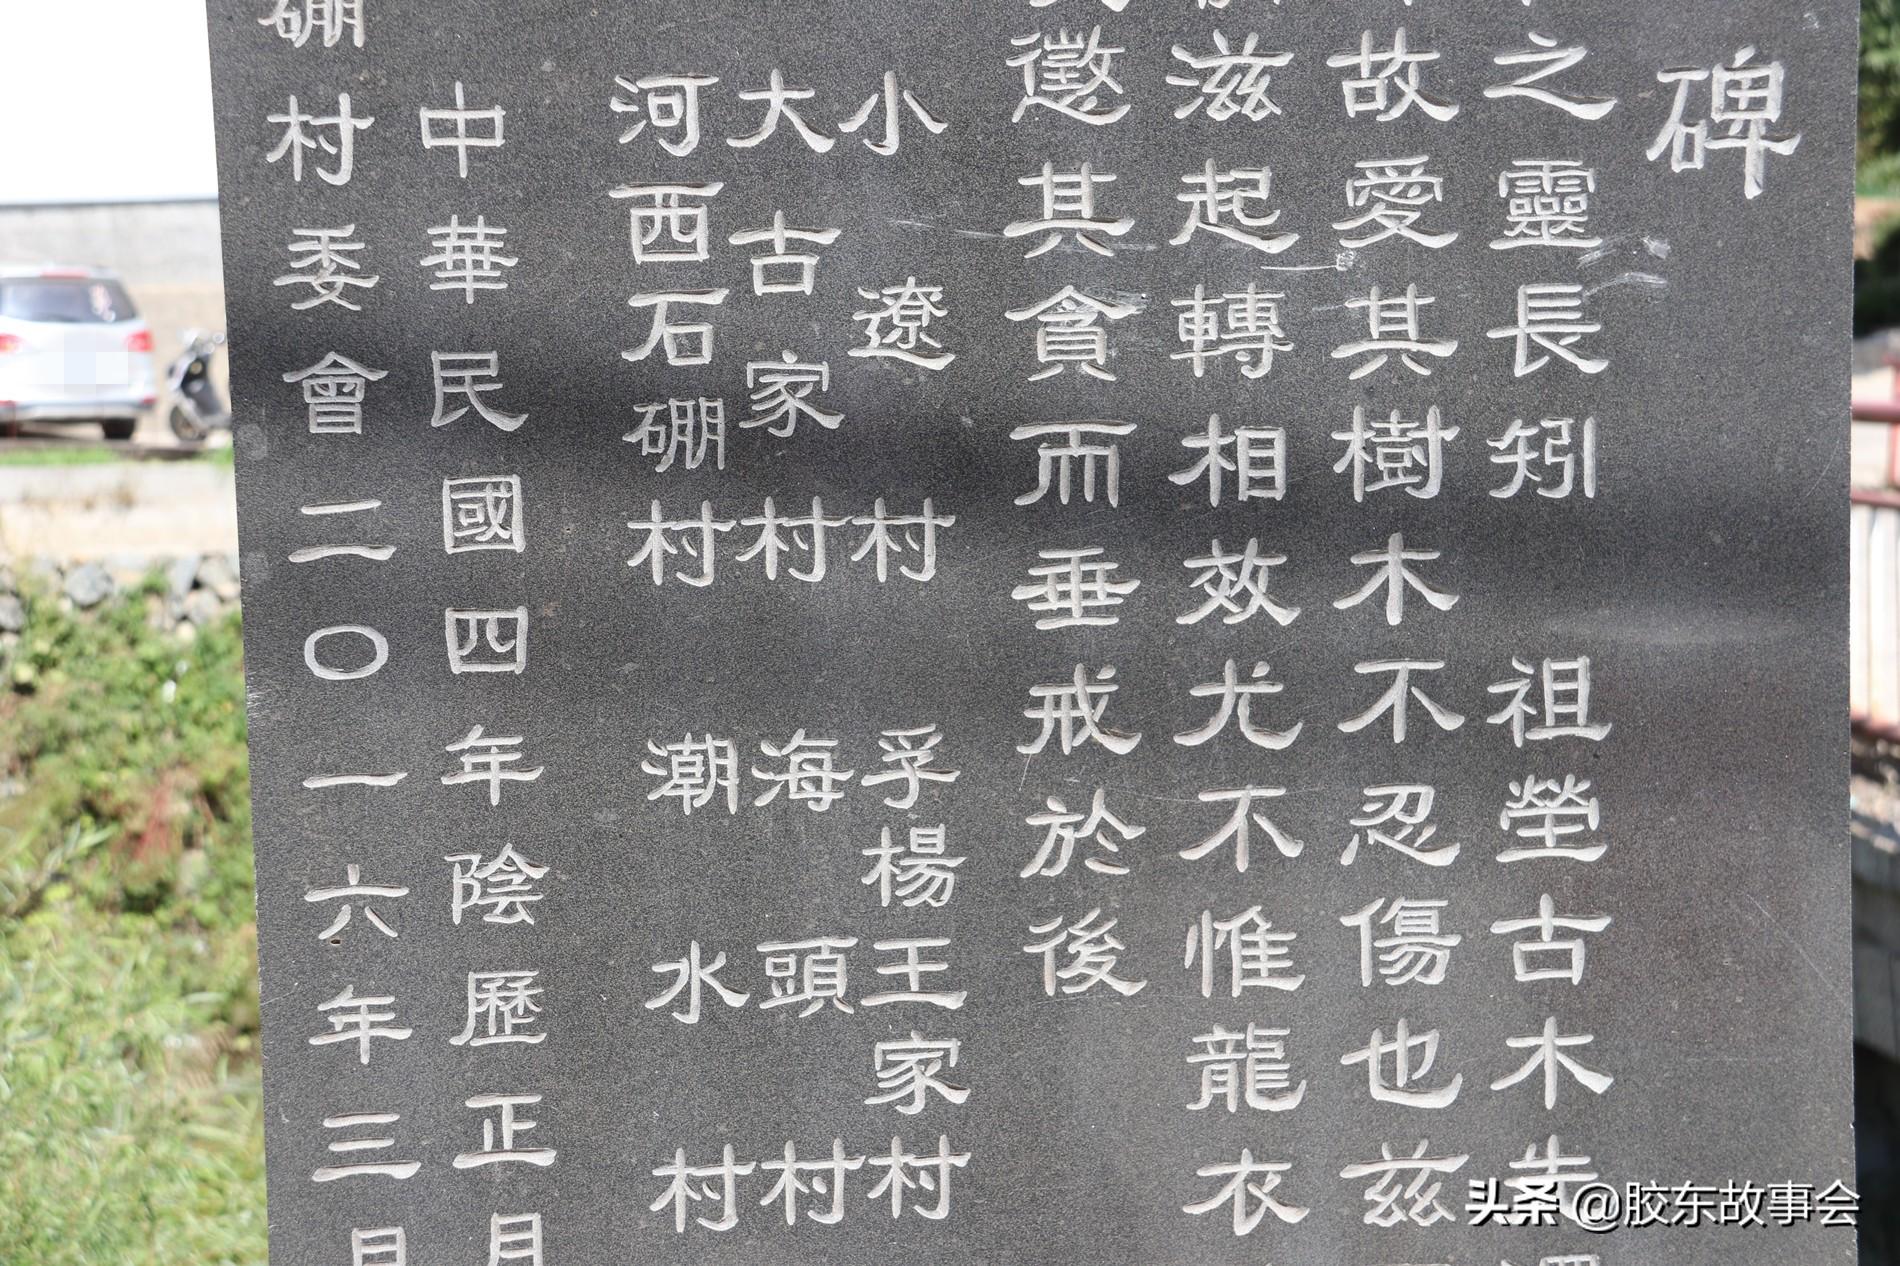 碑
之靈長矧 祖塋古木
故愛其樹木不忍傷也茲
滋起轉相效尤不惟龍衣
懲其貪而垂戒於後
小遼村 孚楊王家村
大古家村 海頭村
河西石硼村 潮水村
中華民國四年陰歷正月
硼村委會二〇一六年三月
头条 @胶东故事会